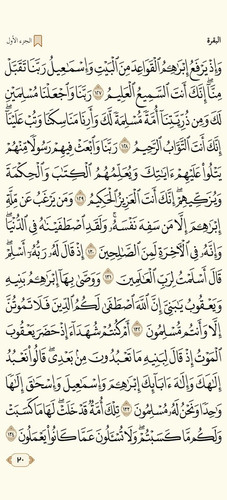 البقرة
الجزء الأول
وَإِذْ يَرْفَعُ إِبْرَٰهِـۧمُ ٱلْقَوَاعِدَ مِنَ ٱلْبَيْتِ وَإِسْمَٰعِيلُ رَبَّنَا تَقَبَّلْ
مِنَّآ ۖ إِنَّكَ أَنتَ ٱلسَّمِيعُ ٱلْعَلِيمُ ١٢٧ رَبَّنَا وَٱجْعَلْنَا مُسْلِمَيْنِ
لَكَ وَمِن ذُرِّيَّتِنَآ أُمَّةً مُّسْلِمَةً لَّكَ وَأَرِنَا مَنَاسِكَنَا وَتُبْ عَلَيْنَآ ۖ
إِنَّكَ أَنتَ ٱلتَّوَّابُ ٱلرَّحِيمُ ١٢٨ رَبَّنَا وَٱبْعَثْ فِيهِمْ رَسُولًا مِّنْهُمْ
يَتْلُوا۟ عَلَيْهِمْ ءَايَٰتِكَ وَيُعَلِّمُهُمُ ٱلْكِتَٰبَ وَٱلْحِكْمَةَ
وَيُزَكِّيهِمْ ۚ إِنَّكَ أَنتَ ٱلْعَزِيزُ ٱلْحَكِيمُ ١٢٩ وَمَن يَرْغَبُ عَن مِّلَّةِ
إِبْرَٰهِـۧمَ إِلَّا مَن سَفِهَ نَفْسَهُۥ ۚ وَلَقَدِ ٱصْطَفَيْنَٰهُ فِى ٱلدُّنْيَا ۖ
وَإِنَّهُۥ فِى ٱلْءَاخِرَةِ لَمِنَ ٱلصَّٰلِحِينَ ١٣٠ إِذْ قَالَ لَهُۥ رَبُّهُۥٓ أَسْلِمْ ۖ
قَالَ أَسْلَمْتُ لِرَبِّ ٱلْعَٰلَمِينَ ١٣١ وَوَصَّىٰ بِهَآ إِبْرَٰهِـۧمُ بَنِيهِ
وَيَعْقُوبُ يَٰبَنِىَّ إِنَّ ٱللَّهَ ٱصْطَفَىٰ لَكُمُ ٱلدِّينَ فَلَا تَمُوتُنَّ
إِلَّا وَأَنتُم مُّسْلِمُونَ ١٣٢ أَمْ كُنتُمْ شُهَدَآءَ إِذْ حَضَرَ يَعْقُوبَ
ٱلْمَوْتُ إِذْ قَالَ لِبَنِيهِ مَا تَعْبُدُونَ مِنۢ بَعْدِى قَالُوا۟ نَعْبُدُ
إِلَٰهَكَ وَإِلَٰهَ ءَابَآئِكَ إِبْرَٰهِـۧمَ وَإِسْمَٰعِيلَ وَإِسْحَٰقَ إِلَٰهًا
وَٰحِدًا وَنَحْنُ لَهُۥ مُسْلِمُونَ ١٣٣ تِلْكَ أُمَّةٌ قَدْ خَلَتْ ۖ لَهَا مَا كَسَبَتْ
وَلَكُم مَّا كَسَبْتُمْ ۖ وَلَا تُسْـَٔلُونَ عَمَّا كَانُوا۟ يَعْمَلُونَ ١٣٤
٢٠